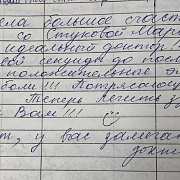 ела большое счаст
со Стуковой Мари
идеальный доктор!
вой секунды до после
положительные эм
боли!!! Потрясающ
Теперь лечить з
Вам!!!
т, у вас замечат